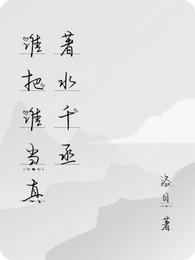 谁把谁当真
著水千丞
洛日 著